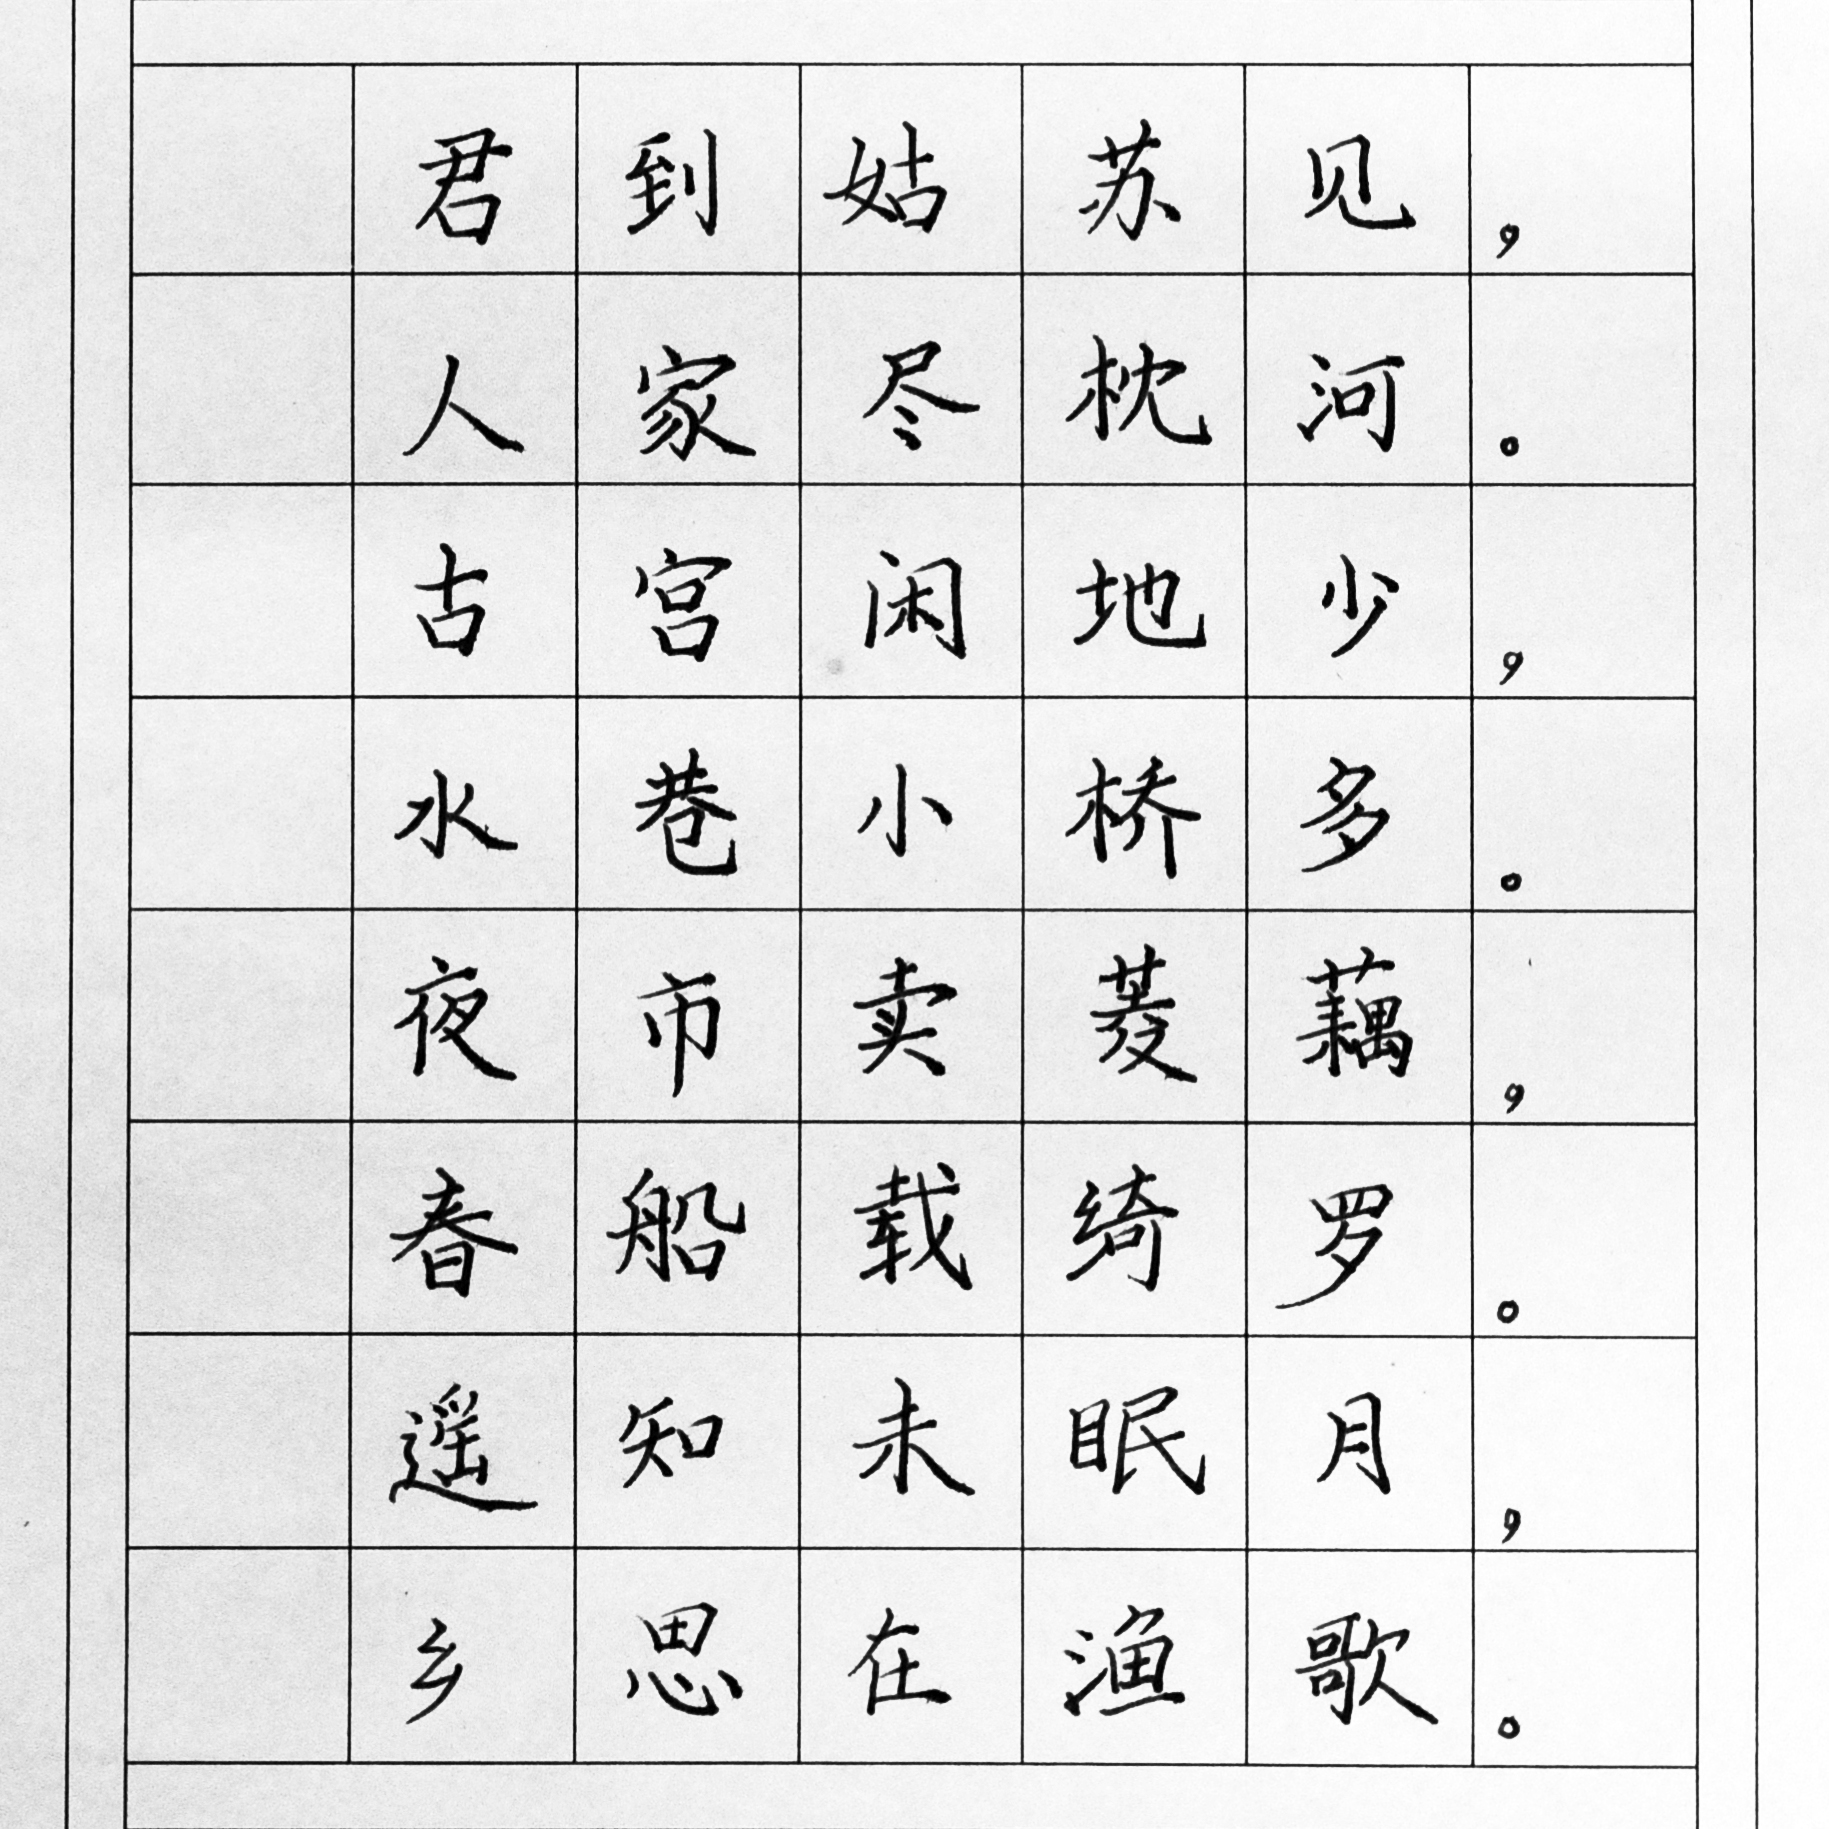 君到姑苏见，
人家尽枕河。
古宫闲地少，
水巷小桥多。
夜市卖菱藕，
春船载绮罗。
遥知未眠月，
乡思在渔歌。